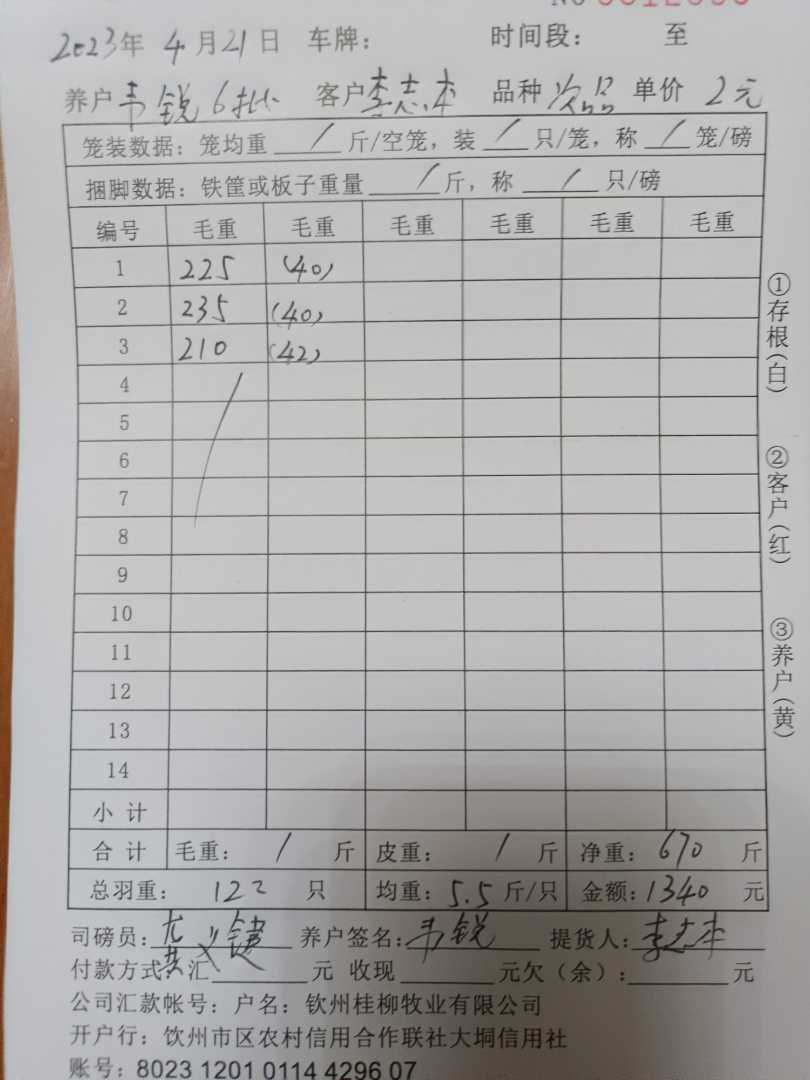 2023年 4月21日 车牌： 时间段： 至
养户 韦锐6批 客户 李志本 品种 次品 单价 2元
笼装数据：笼均重 / 斤/空笼，装 / 只/笼，称 / 笼/磅
捆脚数据：铁筐或板子重量 / 斤，称 / 只/磅
编号 毛重 毛重 毛重 毛重 毛重 毛重
1 225 (40)
2 235 (40)
3 210 (42)
4
5
6
7
8
9
10
11
12
13
14
小计
合计 毛重： / 斤 皮重： / 斤 净重：670 斤
总羽重： 122 只 均重：5.5斤/只 金额：1340 元
司磅员： 养户签名：韦锐 提货人：李志本
付款方式 汇 元 收现 元欠（余）： 元
公司汇款帐号：户名：钦州桂柳牧业有限公司
开户行：饮州市区农村信用合作联社大垌信用社
账号：8023 1201 0114 4296 07
①存根(白)
②客户(红)
③养户(黄)